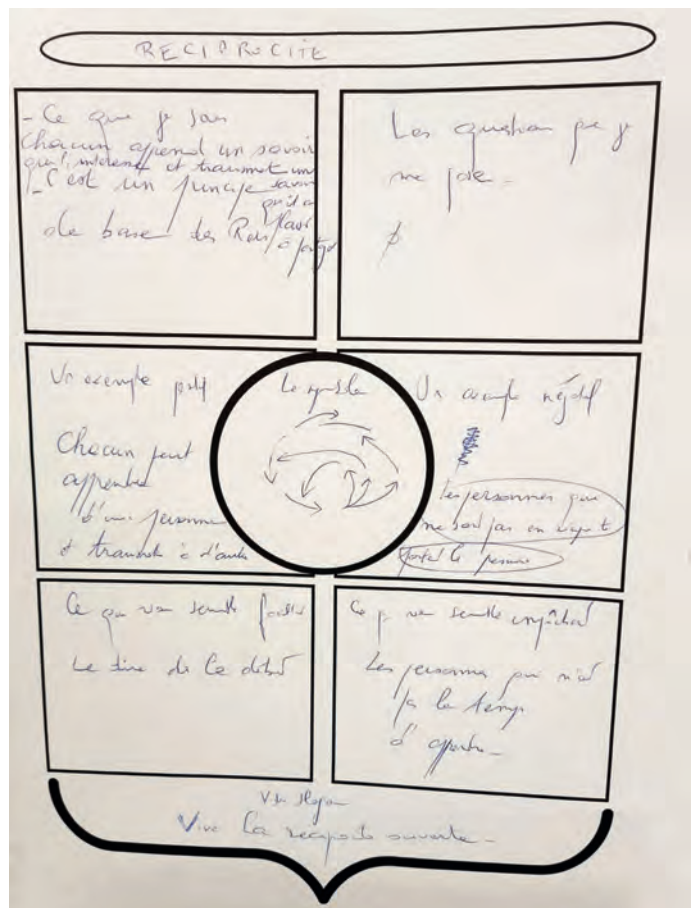 RECIPROCITE
- Ce que je sais
Chacun apend un savoir
qui l'interesse et transmet un
savoir
- C'est un principe
qu'il a
de base des
plaisir
à partager
Les question que je
me pose -
Un exemple positif
Chacun peut
apprendre
d'une personne
et transmettre à d'autre
Le symbole
Un exemple négatif
Les personnes qui
ne sont pas en
Ce qui vous semble facile
Le dire dès le début
Ce qui vous semble empêcher
Les personnes qui n'ont
pas le temps
d'apprendre -
Votre slogan
Vive la réciprocité ouverte -